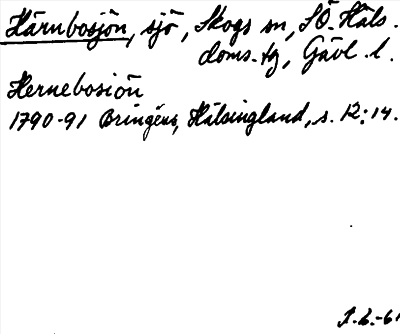 Härnbosjön, sjö, Skogs sn, SÖ. Häls.
doms.tg, Gävl. l.
Hernebosiön
1790-91 Bringéus, Hälsingland, s. 12:14.